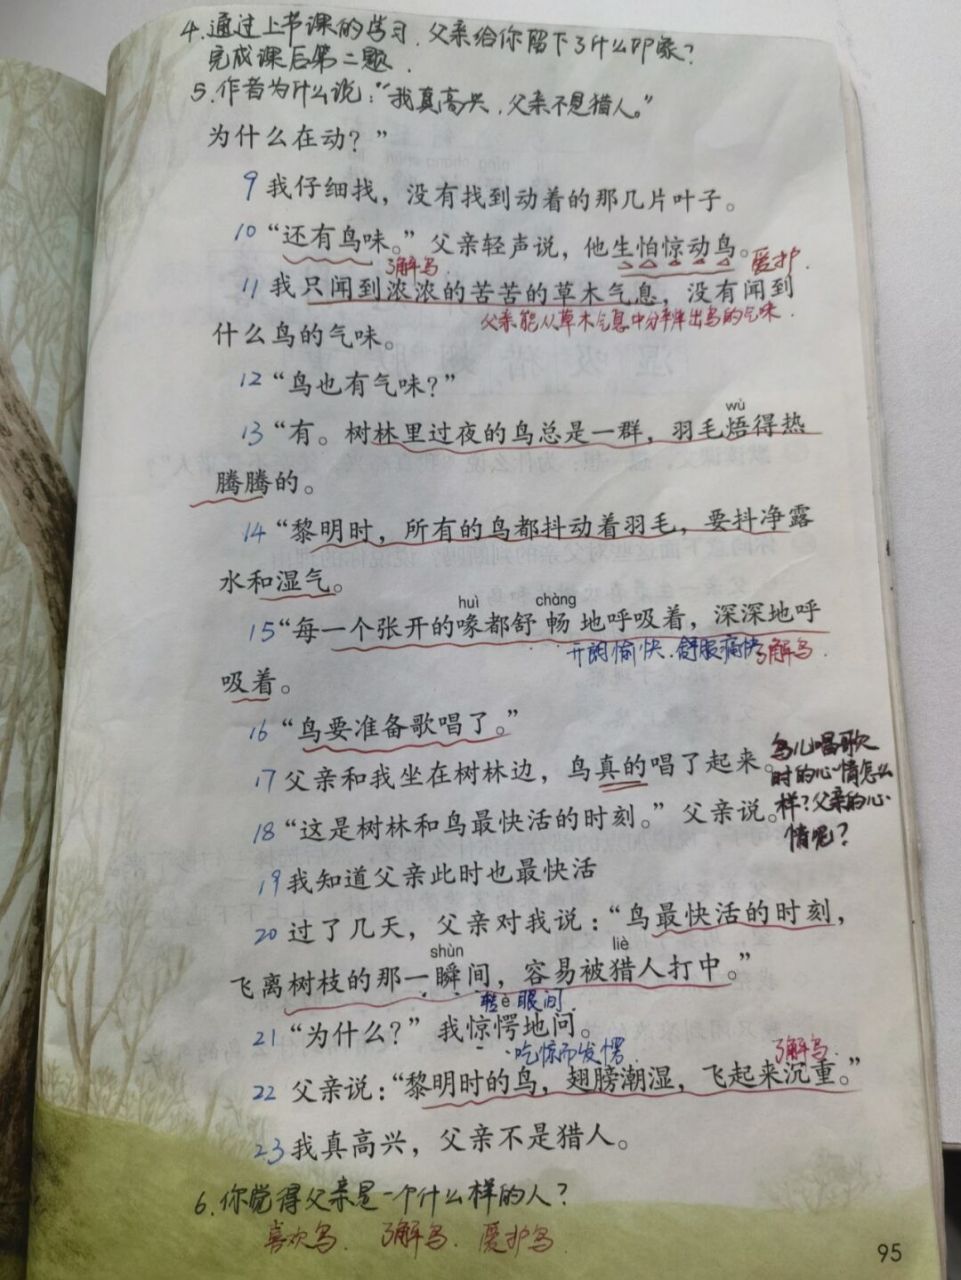 4.通过上节课的学习,父亲给你留下了什么印象?
完成课后第二题.
5.作者为什么说:“我真高兴,父亲不是猎人。”
为什么在动?”
9 我仔细找,没有找到动着的那几片叶子。
10 “还有鸟味。”父亲轻声说,他生怕惊动鸟。
了解鸟.
爱护.
11 我只闻到浓浓的苦苦的草木气息,没有闻到
父亲能从草木气息中分辨出鸟的气味.
什么鸟的气味。
12 “鸟也有气味?”
wù
13 “有。树林里过夜的鸟总是一群,羽毛焐得热
腾腾的。
14 “黎明时,所有的鸟都抖动着羽毛,要抖净露
水和湿气。
huì chàng
15 “每一个张开的喙都舒畅地呼吸着,深深地呼
开朗愉快.舒服痛快 了解鸟.
吸着。
16 “鸟要准备歌唱了。”
17 父亲和我坐在树林边,鸟真的唱了起来。
鸟儿唱歌
时的心情怎么
样?父亲的心
情呢?
18 “这是树林和鸟最快活的时刻。”父亲说。
19 我知道父亲此时也最快活
20 过了几天,父亲对我说:“鸟最快活的时刻,
shùn liè
飞离树枝的那一瞬间,容易被猎人打中。”
转眼间.
è
21 “为什么?”我惊愕地问。
吃惊而发愣.
了解鸟.
22 父亲说:“黎明时的鸟,翅膀潮湿,飞起来沉重。”
23 我真高兴,父亲不是猎人。
6.你觉得父亲是一个什么样的人?
喜欢鸟. 了解鸟. 爱护鸟.
95